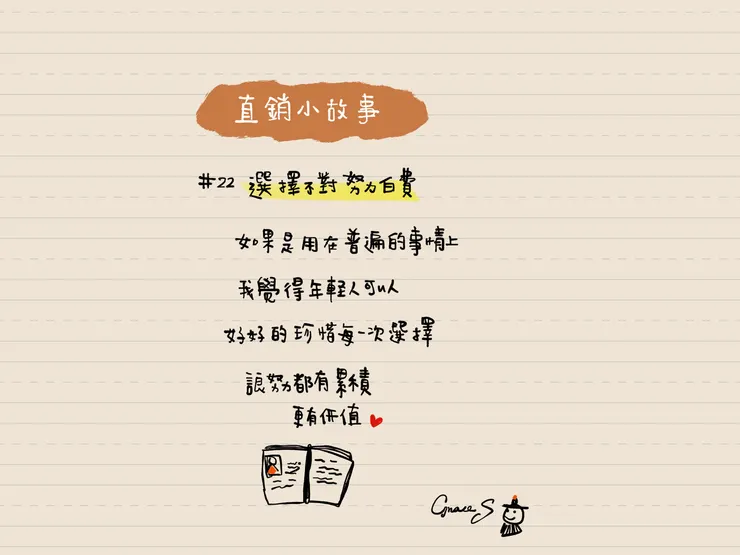 直銷小故事
#22 選擇不對努力白費
如果是用在普遍的事情上
我覺得年輕人可以人
好好的珍惜每一次選擇
讓努都有累績
更有價值
Grace S